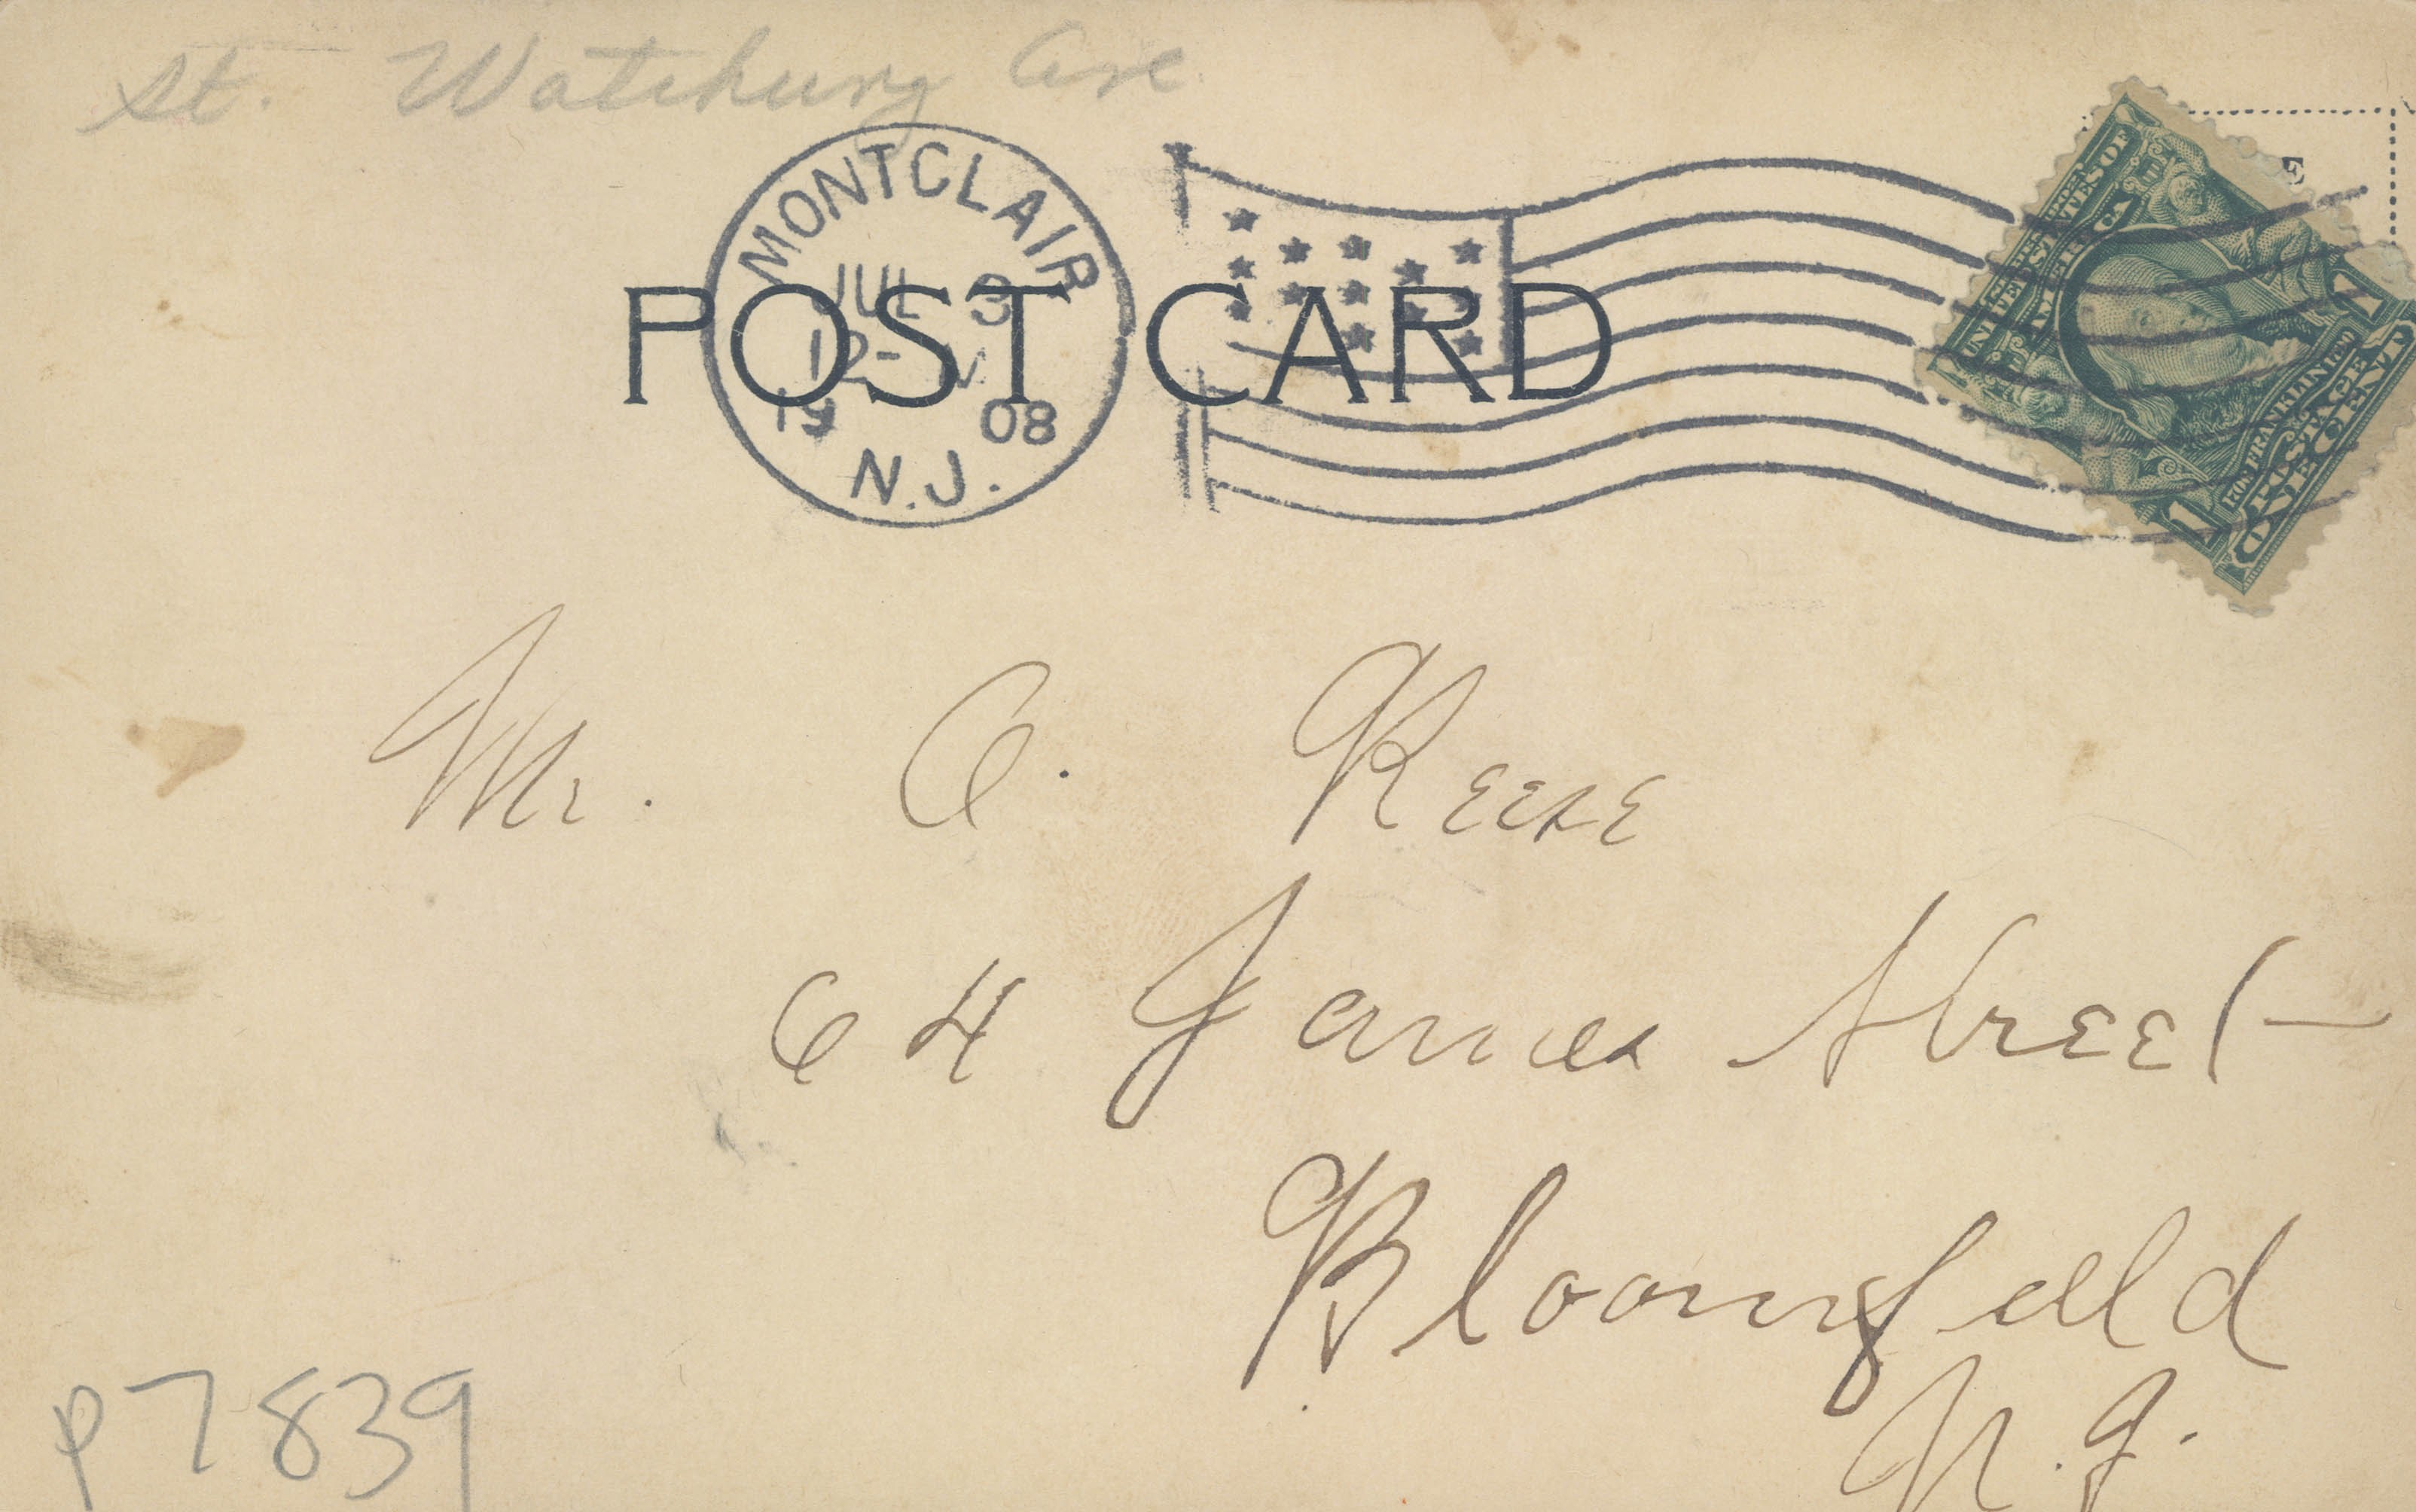 St. Watchung Ave
MONTCLAIR
JUL 3
12-
1908
N.J.
POST CARD
E
UNITED STATES OF AMERICA
1706 FRANKLIN 1790
POSTAGE
ONE CENT
1 1
Mr. C. Reese
64 James Street
Bloomfield
N.J.
P7839